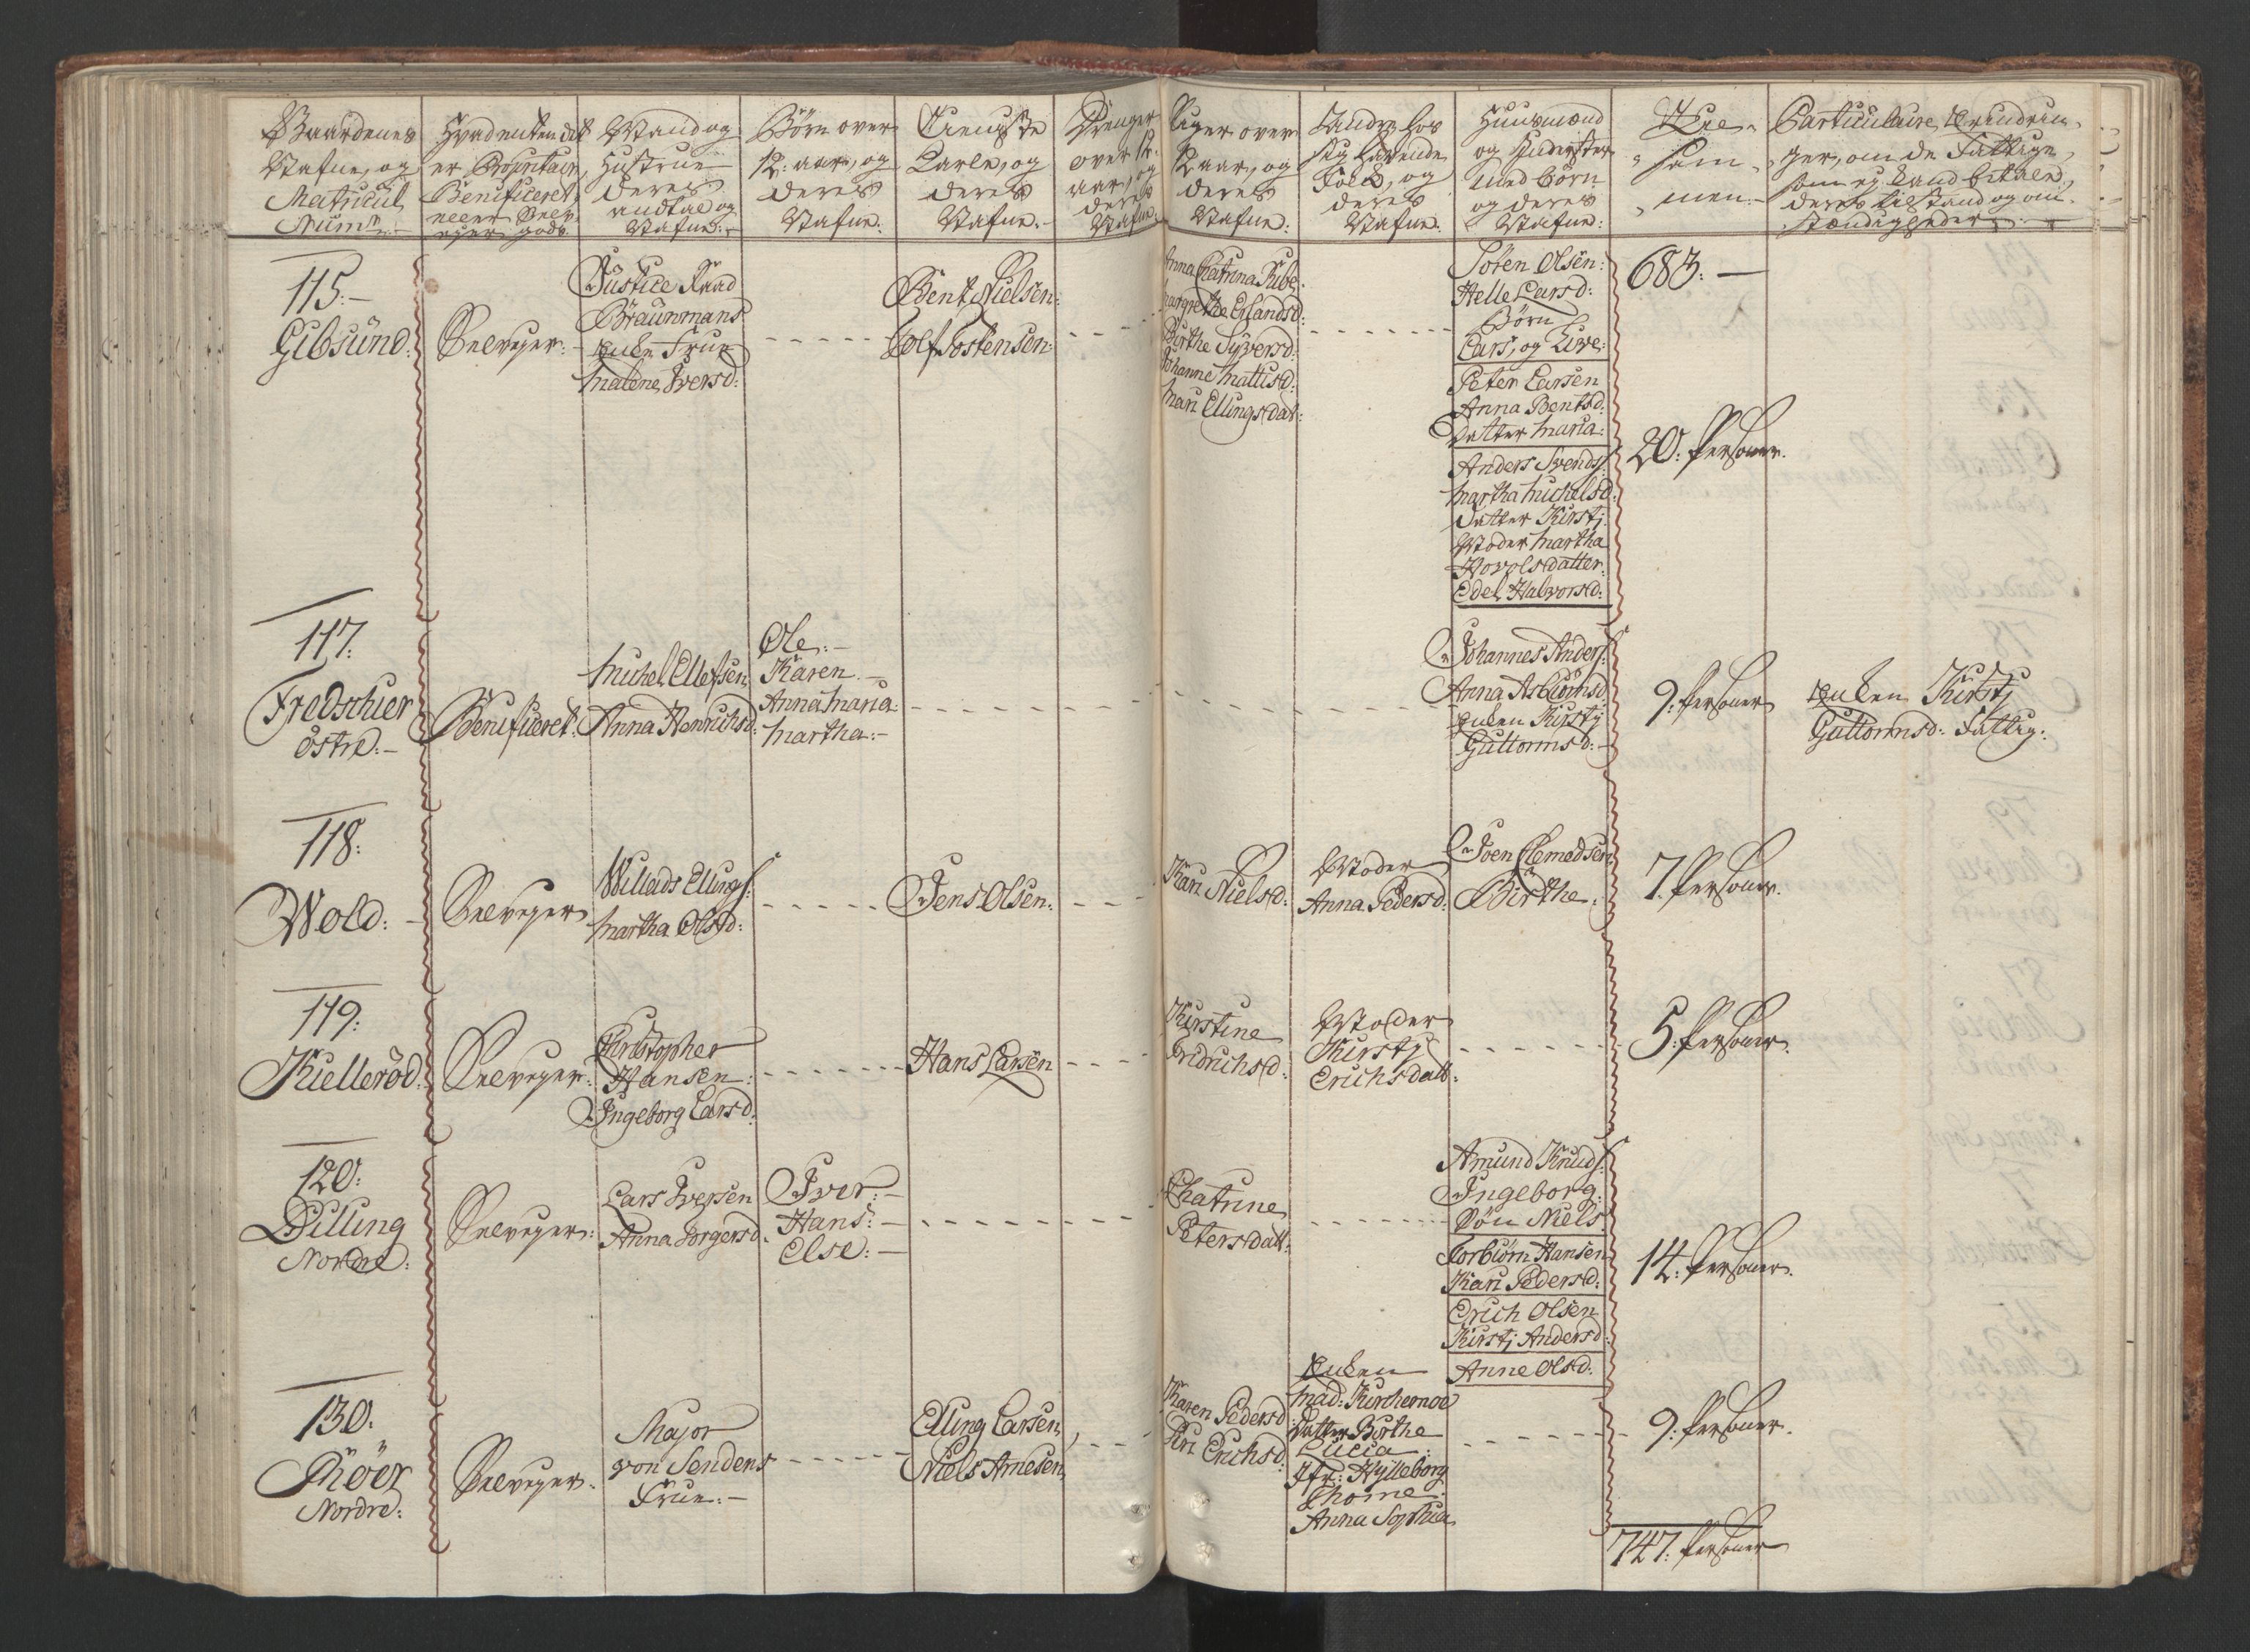 Gaardenes
Nafne, og
Matricul
Num:
Hvad enten det
er Proprietair,
Beneficeret,
eller Selv-
eyer gods.
Mand og
Hustrue
deres
andtal og
Nafne:
Börn over
12: aar, og
deres
Nafne:
Tieniste
Karle, og
deres
Nafne:
Drenger
over 12:
aar, og
deres
Nafne:
Piger over
12 aar, og
deres
Nafne:
Andre hos
sig havende
Folk, og
deres
Nafne:
Huusmænd
og Inderster
med Börn
og deres
Nafne:
Til-
sam-
men:
Particulaire Erindrin-
ger, om de Fattige,
som ej kand betale,
deres tilstand og om-
stændigheder
115:
Gibsund:
Selveyer:
Justice Raad
Braunmans
Enke Frue
Malene Iversd:
Bent Nielsen:
Tolf Tostensen:
Anna Catrina Tube:
Margrethe Erlandsd:
Birthe Syversd:
Johanne Mattisd:
Mari Ellingsdat:
Sören Olsen:
Helle Larsd:
Börn
Lars, og Live:
Peter Larsen
Anna Bentsd:
Datter Maria:
Anders Svends:
Martha Michelsd:
Datter Kirstj
Moder Martha
Hovolsdatter:
Edel Halvorsd:
683:
20: Personer.
117:
Fredschier
östre:
Beneficeret:
Michel Ellefsen
Anna Henrichsd:
Ole:
Karen
Anna Maria:
Martha:
Johannes Anders:
Anna Asbiörnsd:
Enken Kirstj
Guttormsd:
9: Personer
Enken Kirstj
Guttormsd: Fattig:
118:
Wold:
Selveyer
Willads Ellings:
Martha Olsd:
Jens Olsen:
Kari Nielsd:
Moder
Anna Pedersd:
Joen Clemedsen
Birthe:
7: Personer.
119:
Kielleröd:
Selveyer:
Christopher
Hansen:
Ingeborg Larsd:
Hans Larsen
Kirstine
Fridrichsd:
Moder
Kirstj
Erichsdatt:
5: Personer.
120:
Dilling
Nordre:
Selveyer:
Lars Iversen
Anna Torgersd:
Iver:
Hans:
Else:
Chatrine
Petersdatt:
Amund Knuds:
Ingeborg:
Sön Niels
Torbiörn Hansen
Kari Pedersd:
Erich Olsen
Kirstj Andersd:
Anne Olsd:
14: Personer.
130:
Röer
Nordre:
Selveyer:
Major
von Sendens
Frue:
Elling Larsen,
Niels Arnesen,
Karen Pedersd:
Siri Erichsd:
Enken
Mad: Kirchemoe
Datter Birthe
Lucia:
Jfr: Hylleborg
Thorne
Anna Sophia
9: Personer.
747: Personer